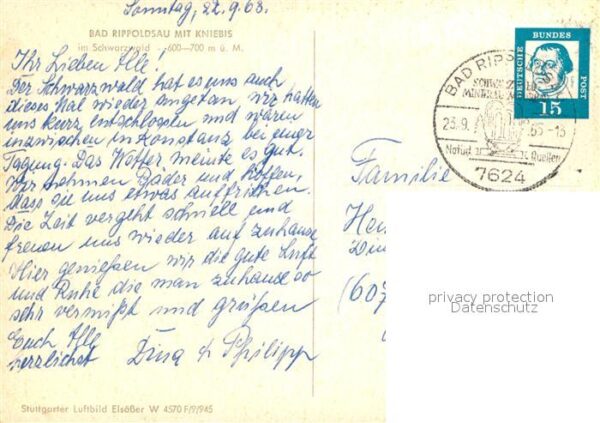 Sonntag, 22.9.63.
BAD RIPPOLDSAU MIT KNIEBIS
im Schwarzwald 600—700 m ü. M.
Ihr Lieben Alle!
Der Schwarzwald hat es uns auch
dieses Mal wieder angetan wir hatten
uns kurz entschlossen und waren
inzwischen in Konstanz bei einer
Tagung. Das Wetter meinte es gut.
Wir nehmen Bäder und hoffen,
dass sie uns etwas auffrischen.
Die Zeit vergeht schnell und
freuen uns wieder auf zuhause
Hier genießen wir die gute Luft
und Ruhe die man zuhause so
sehr vermißt und grüßen
Euch Alle
herzlichst Dina & Philipp
Stuttgarter Luftbild Elsäßer W 4570 F/9/945
DEUTSCHE BUNDESPOST
15
BAD RIPP
MINERAL
23.9. 63-13
Natürl. Quellen
7624
Familie
Hei
(607
privacy protection
Datenschutz